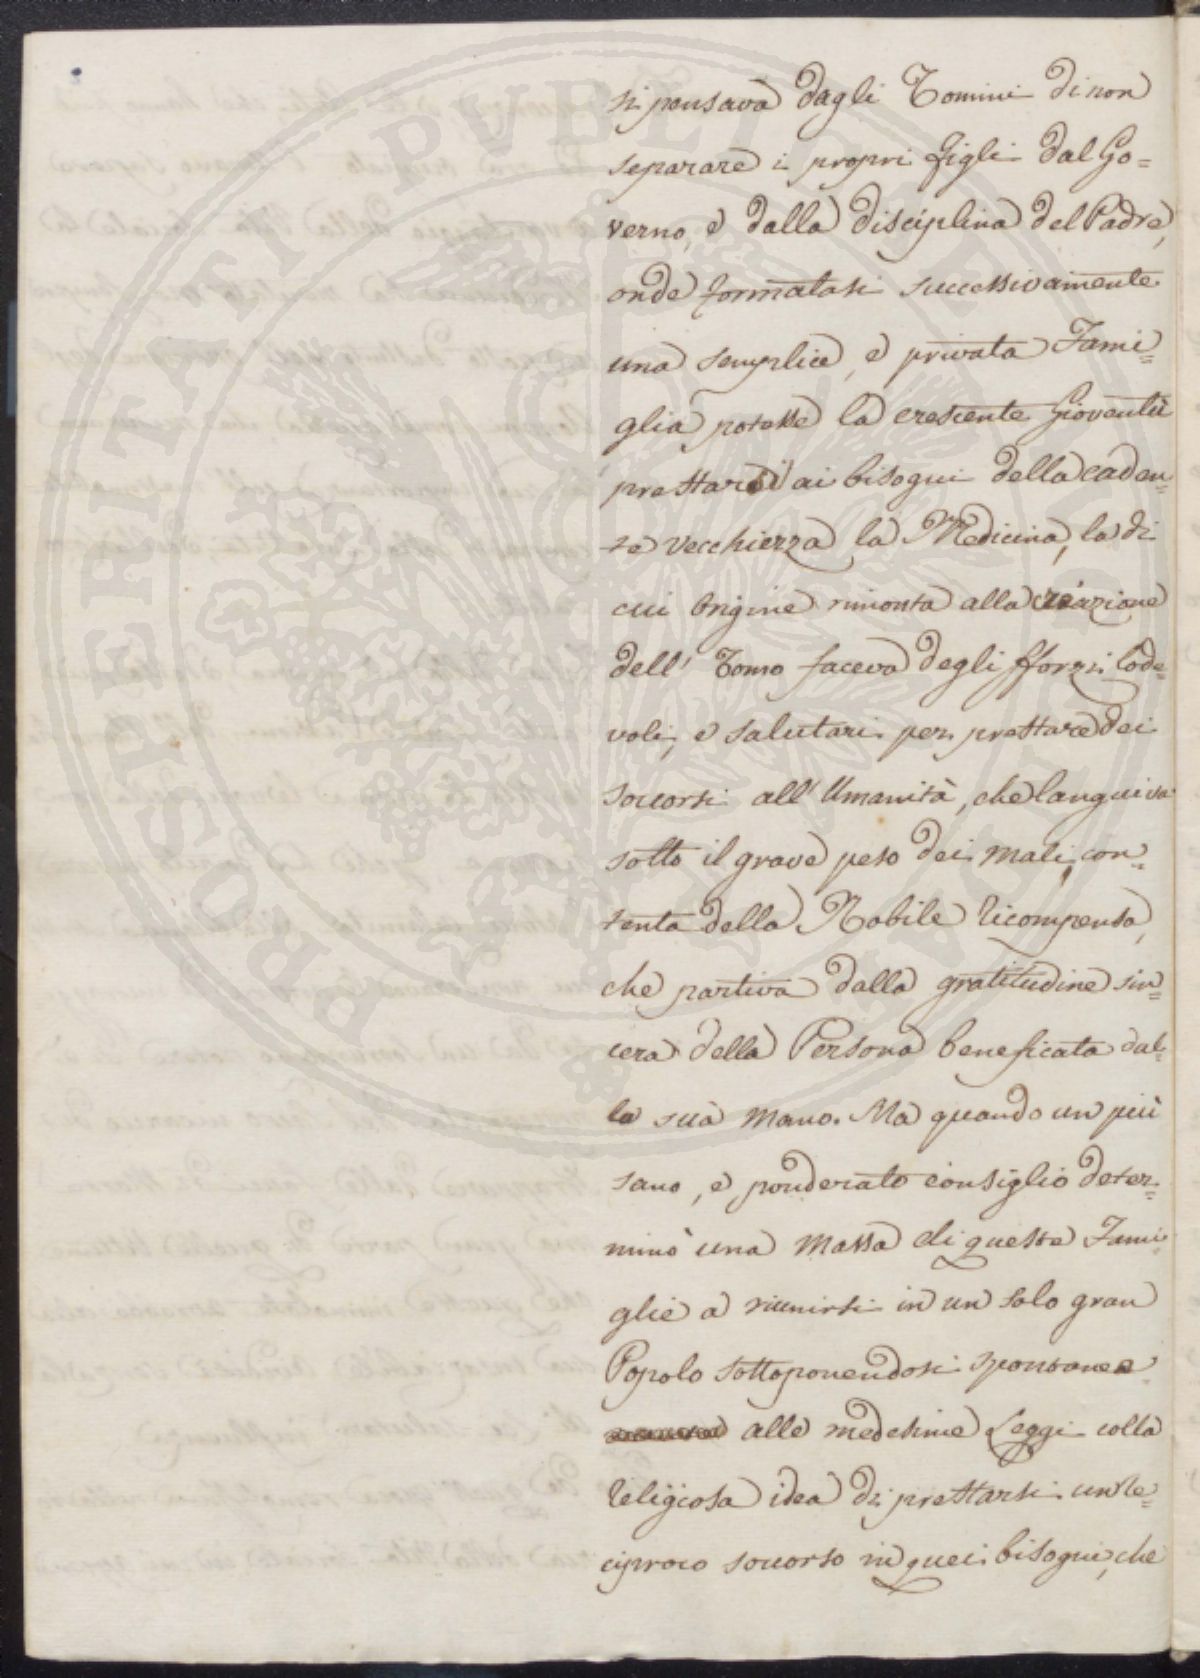 si pensava dagli Uomini di non
separare i propri figli dal Go=
verno, e dalla disciplina del Padre,
onde formatasi successivamente
una semplice, e privata Fami=
glia potesse la crescente Gioventù
prestarsi ai bisogni della caden=
te vecchiezza la Medicina, la di
cui Origine rimonta alla creazione
dell' Uomo faceva degli sforzi lode=
voli, e salutari per prestare dei
soccorsi all' Umanità, che languiva
sotto il grave peso dei mali, con=
tenta della Nobile ricompensa,
che partiva dalla gratitudine sin=
cera della Persona beneficata dal=
la sua mano. Ma quando un più
sano, e ponderato consiglio deter=
minò una Massa di queste Fami=
glie a riunirsi in un solo gran
Popolo sottoponendosi spontanea
alle medesime Leggi colla
religiosa idea di prestarsi un re=
ciproco soccorso in quei bisogni, che
PROSPERITATI PVBLICAE